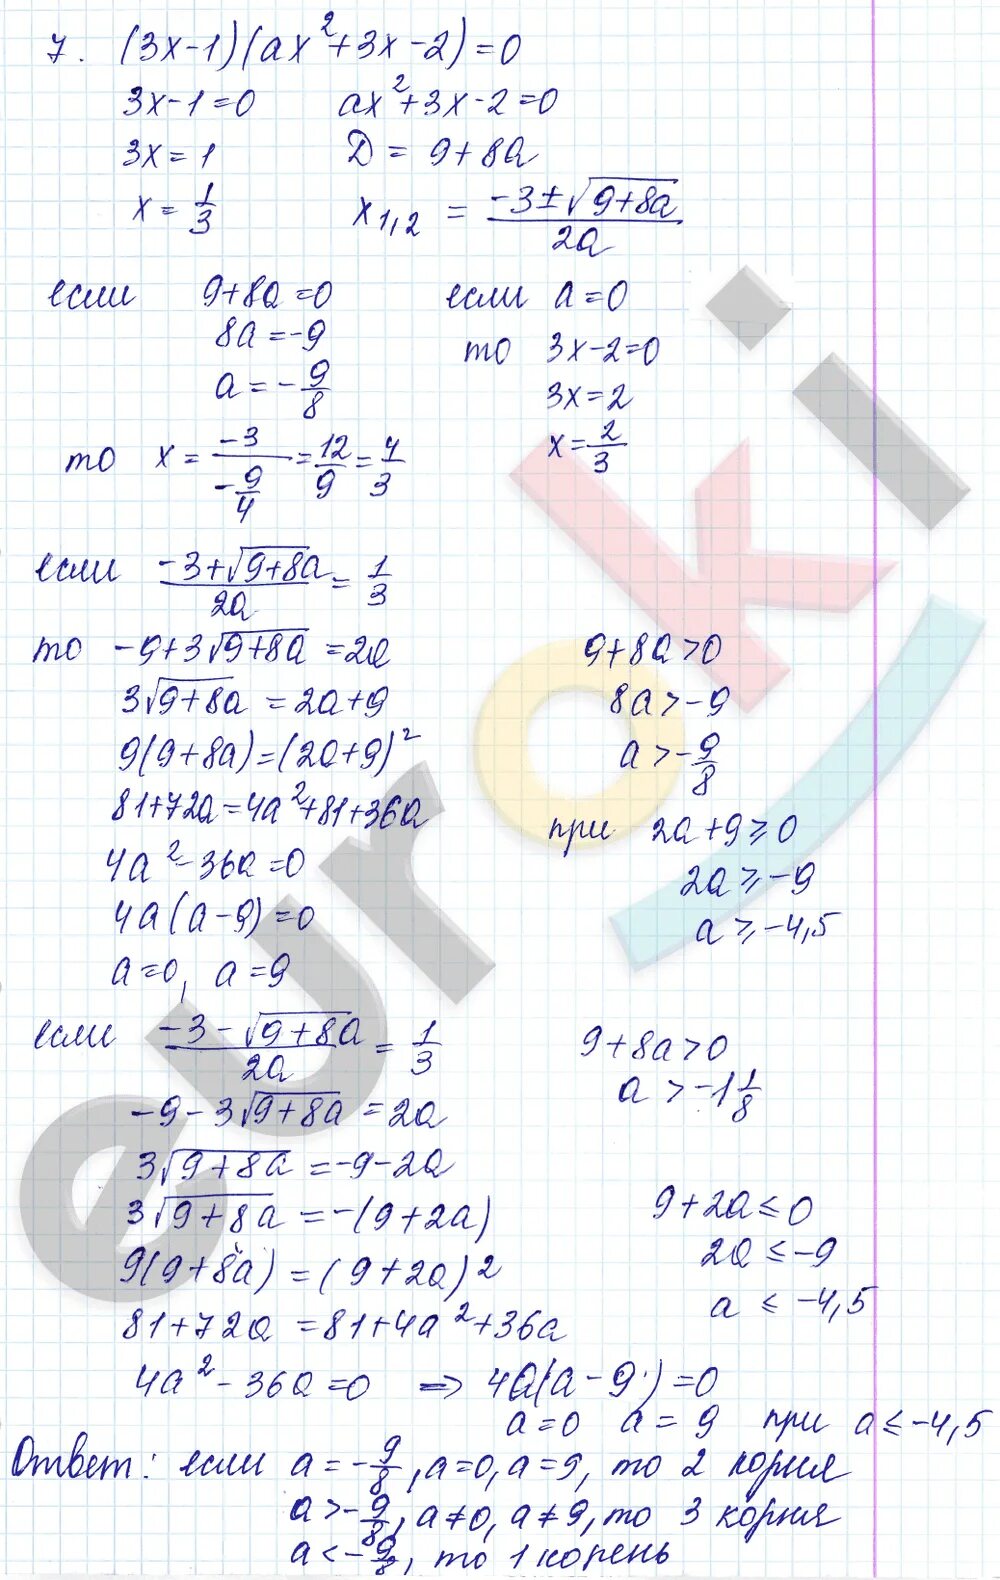 7. (3x-1)(ax²+3x-2)=0
3x-1=0 ax²+3x-2=0
3x=1 D=9+8a
x=1/3 x1,2 = (-3±√(9+8a))/2a
если 9+8a=0 если a=0
8a=-9 то 3x-2=0
a=-9/8 3x=2
то x=-3/(-9/4)=12/9=4/3 x=2/3
если (-3+√(9+8a))/2a=1/3
то -9+3√(9+8a)=2a 9+8a>0
3√(9+8a)=2a+9 8a>-9
9(9+8a)=(2a+9)² a>-9/8
81+72a=4a²+81+36a при 2a+9≥0
4a²-36a=0 2a≥-9
4a(a-9)=0 a≥-4,5
a=0, a=9
если (-3-√(9+8a))/2a=1/3 9+8a>0
-9-3√(9+8a)=2a a>-1 1/8
3√(9+8a)=-9-2a
3√(9+8a)=-(9+2a) 9+2a≤0
9(9+8a)=(9+2a)² 2a≤-9
81+72a=81+4a²+36a a≤-4,5
4a²-36a=0 => 4a(a-9)=0
a=0 a=9 при a≤-4,5
Ответ: если a=-9/8, a=0, a=9, то 2 корня
a>-9/8, a≠0, a≠9, то 3 корня
a<-9/8, то 1 корень
euroki